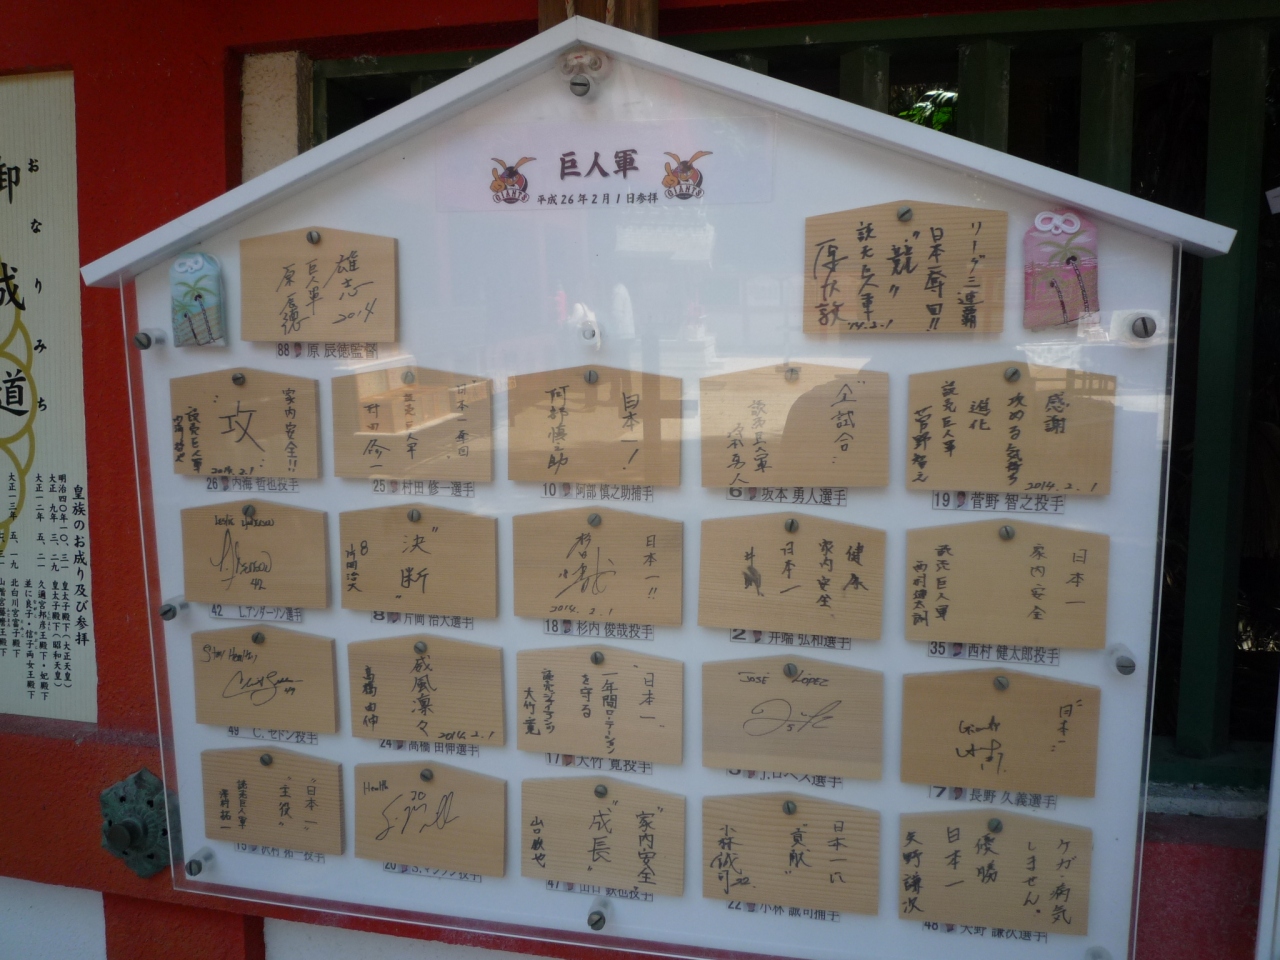 巨人軍
GIANTS
GIANTS
平成26年2月1日参拝
雄志
巨人軍
原辰徳
2014
88 原 辰徳監督
リーグ三連覇
日本奪回!!
"競"
読売巨人軍
'14.2.1
家内安全!!
"攻"
読売巨人軍
2014.2.1
26 内海 哲也投手
日本一奪回
読売巨人軍
村田修一
25 村田 修一選手
日本一!
阿部慎之助
10 阿部 慎之助捕手
全試合
読売巨人軍
坂本勇人
6 坂本 勇人選手
感謝
攻める気持ち
進化
読売巨人軍
菅野智之
2014.2.1
19 菅野 智之投手
42
42 L.アンダーソン選手
"決断"
8
片岡治大
8 片岡 治大選手
日本一!!
杉内
2014.2.1
18 杉内 俊哉投手
健康
家内安全
日本一
井端
2 井端 弘和選手
日本一
家内安全
読売巨人軍
西村健太朗
35 西村 健太郎投手
Stay Healthy
49
49 C.セドン投手
威風凛々
高橋由伸
2014.2.1
24 高橋 由伸選手
"日本一"
一年間ローテーション
を守る
読売ジャイアンツ
大竹寛
17 大竹 寛投手
JOSE LOPEZ
5
5 J.ロペス選手
"日本一"
Giants
7
7 長野 久義選手
"日本一"
"主役"
読売巨人軍
澤村拓一
15 沢村 拓一投手
Health
20
20 S.マシソン投手
"家内安全"
"成長"
山口鉄也
47 山口 鉄也投手
日本一に
"貢献"
小林誠司 22
22 小林 誠司捕手
ケガ・病気
しません。
優勝
日本一
矢野謙次
48 矢野 謙次選手
おなりみち
御成道
皇族のお成り及び参拝
明治四〇年一〇、三一 皇太子殿下(大正天皇)
大正 九年 三、二九 皇太子殿下(昭和天皇)
大正一二年 五、二一 久邇宮邦彦王殿下・妃殿下
並に良子・信子両女王殿下
大正一三年 五、一九 北白川宮富子殿下